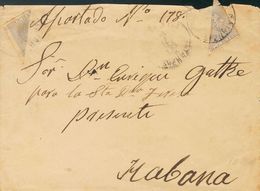 Apartado Nº 178.
Sor. Dn Enrique Gathe
para la Sta Dª
presente
Habana